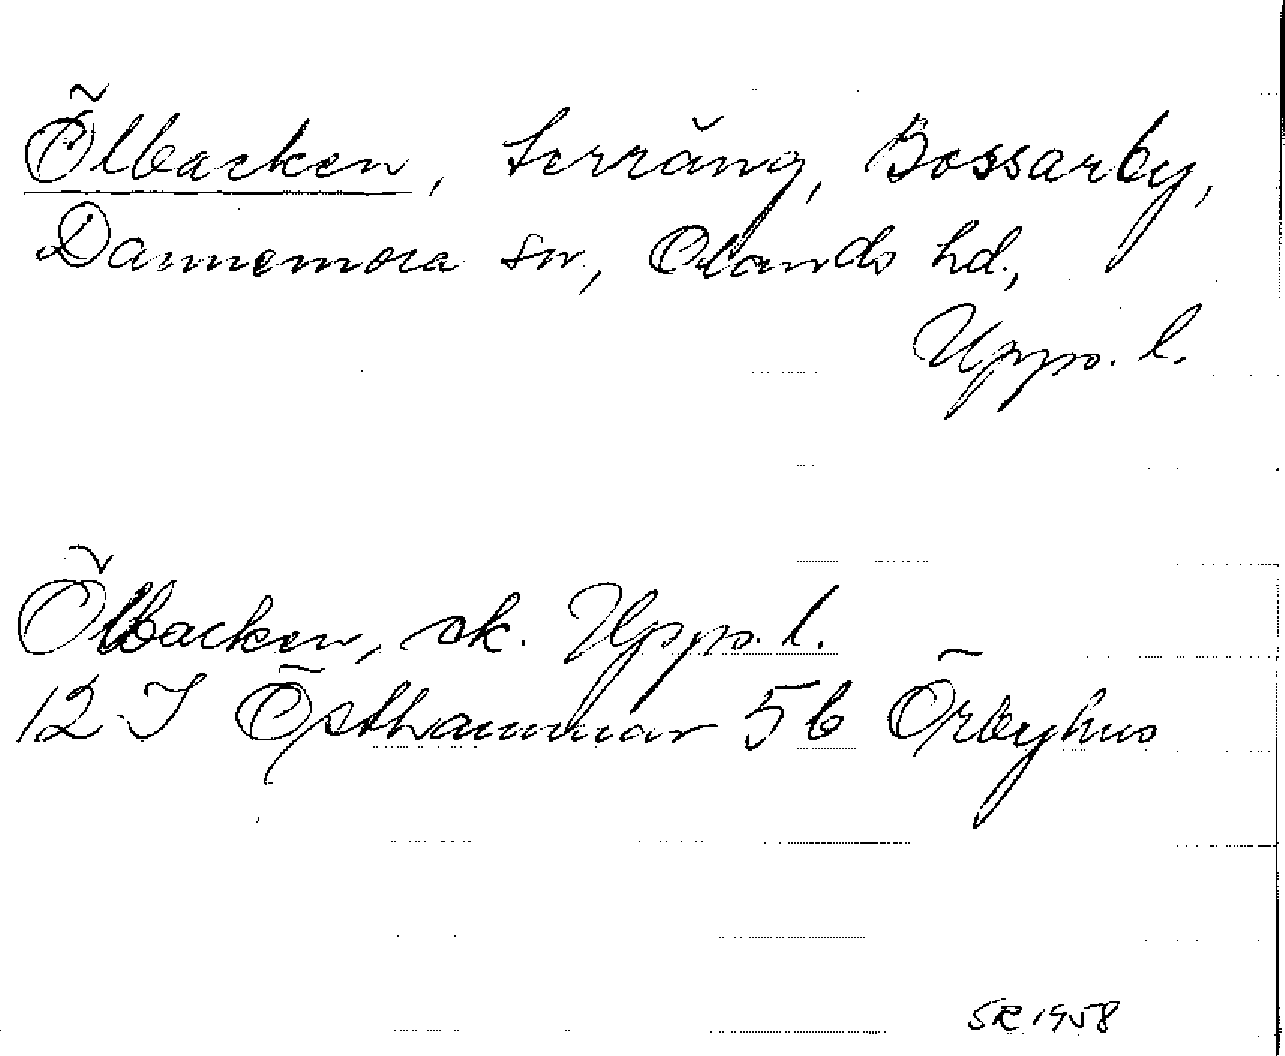 Ölbacken, terräng, Bossarby,
Dannemora sn, Olands hd.,
Upps. l.
Ölbacken, ek. Upps. l.
12 I Östhammar 5b Örbyhus
SR 1958